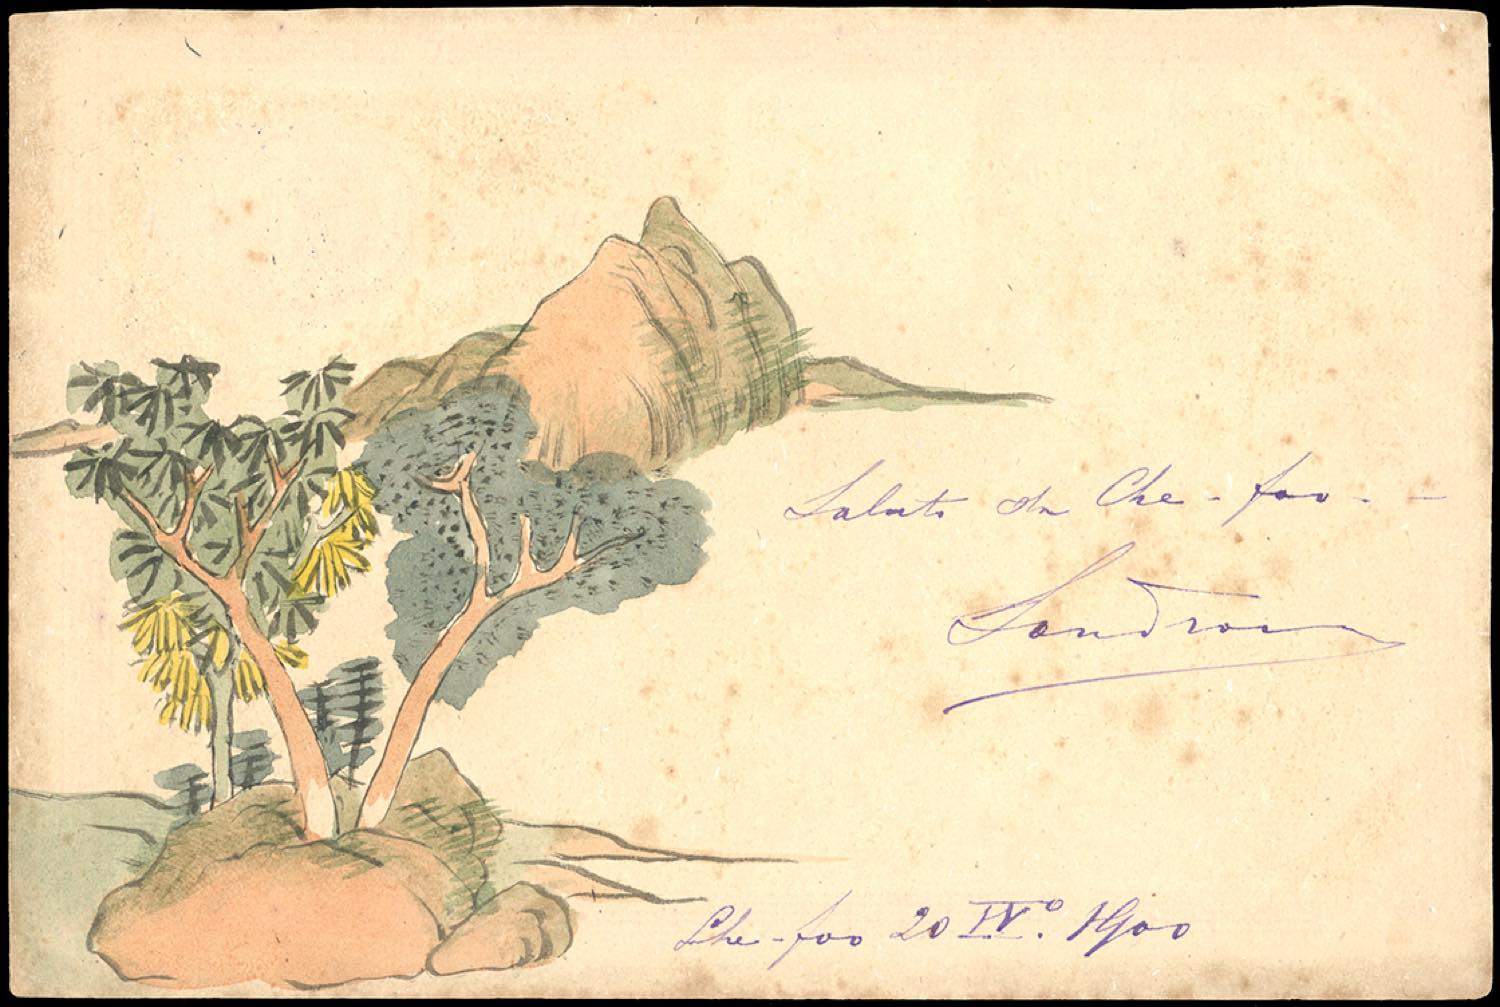 Saluti da Che-foo - -
Sandro
Che-foo 20 IVº. 1900